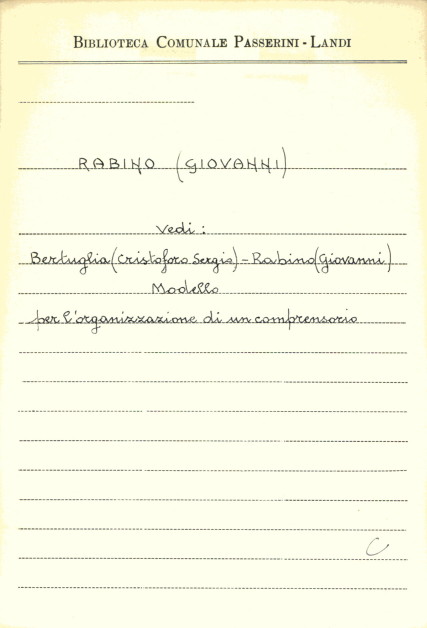 BIBLIOTECA COMUNALE PASSERINI - LANDI
RABINO (GIOVANNI)
Vedi :
Bertuglia (Cristoforo Sergio) - Rabino (Giovanni)
Modello
per l'organizzazione di un comprensorio
C